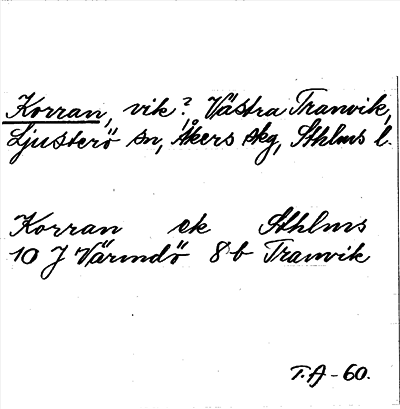 Korran, vik? Västra Tranvik,
Ljusterö sn, Åkers skg, Sthlms l.
Korran ek Sthlms
10 J Värmdö 8b Tranvik
T.A-60.